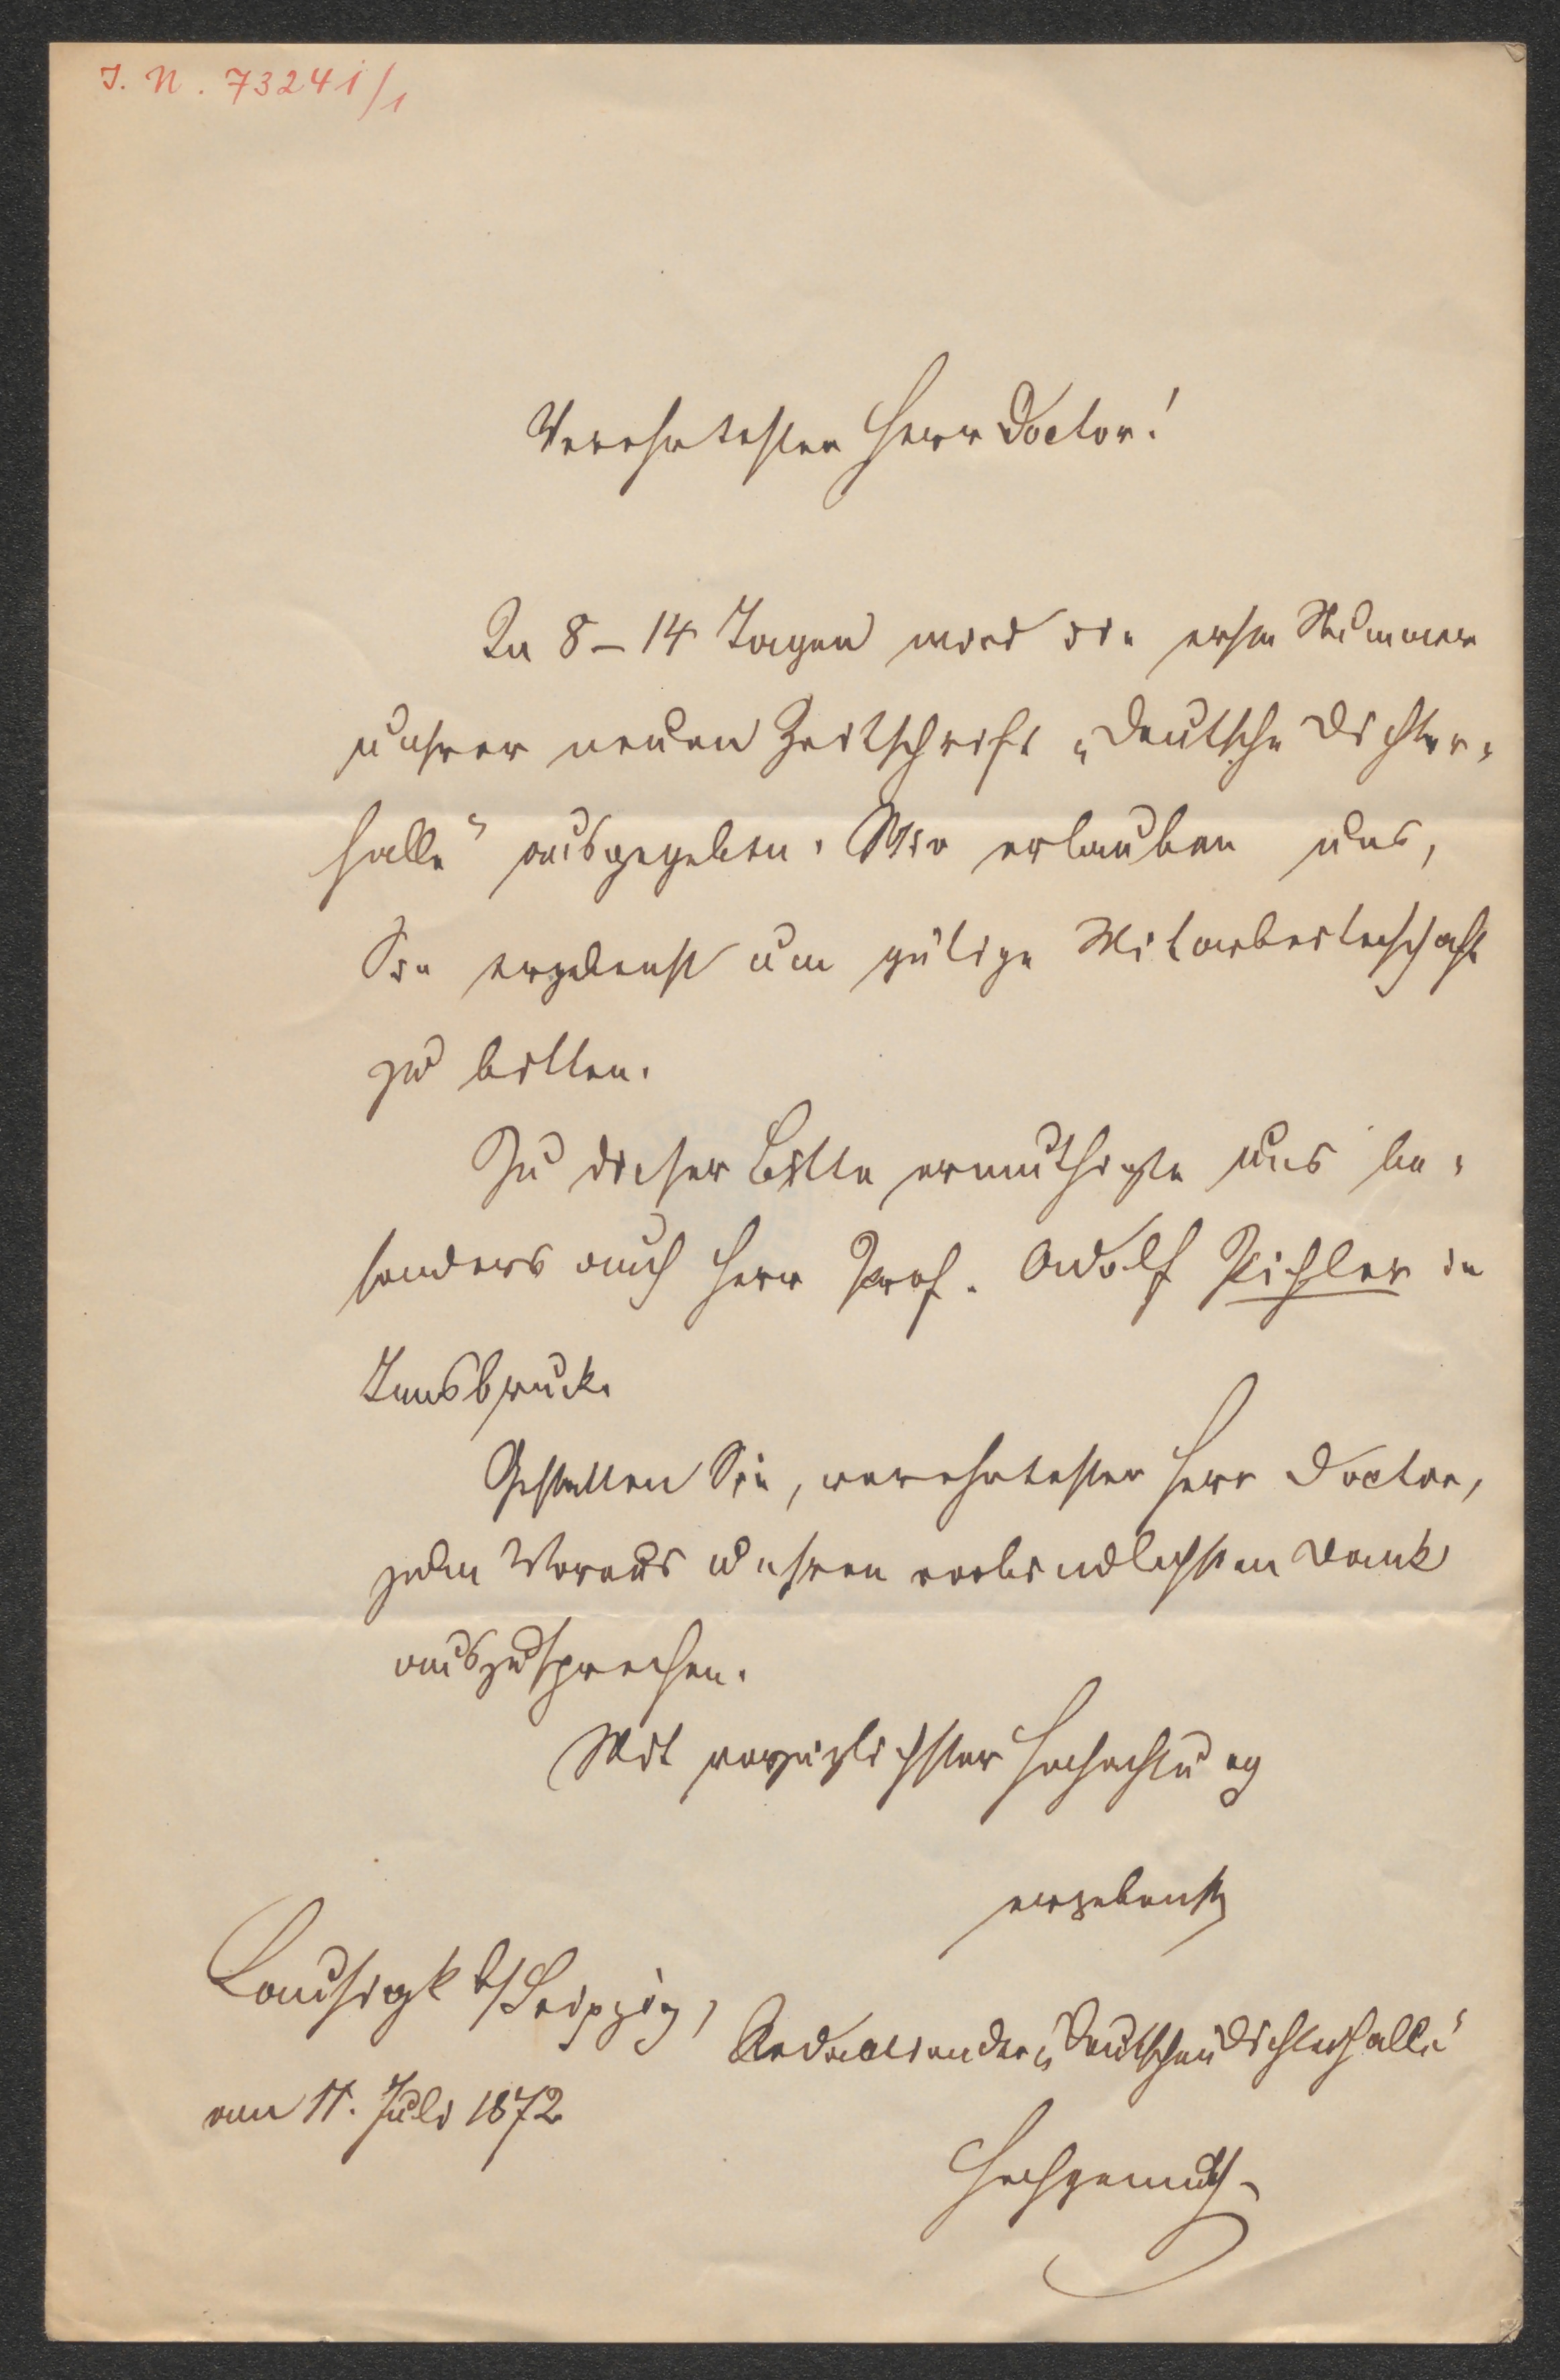 J. N. 73241/1
Verehrtester Herr Doctor!
In 8–14 Tagen wird die erste Nummer
unsrer neuen Zeitschrift „Deutsche Dichter-
halle“ ausgegeben. Wir erlauben uns,
Sie ergebenst um gütige Mitarbeiterschaft
zu bitten.
Zu dieser Bitte ermuthigte uns be-
sonders auch Herr Prof. Adolf Pichler in
Innsbruck.
Gestatten Sie, verehrtester Herr Doctor,
zum Voraus unsren verbindlichsten Dank
auszusprechen.
Mit vorzüglichster Hochachtung
ergebenst
Lausigk b/Leipzig,
Redaction der „Deutschen Dichterhalle“
am 17. Juli 1872